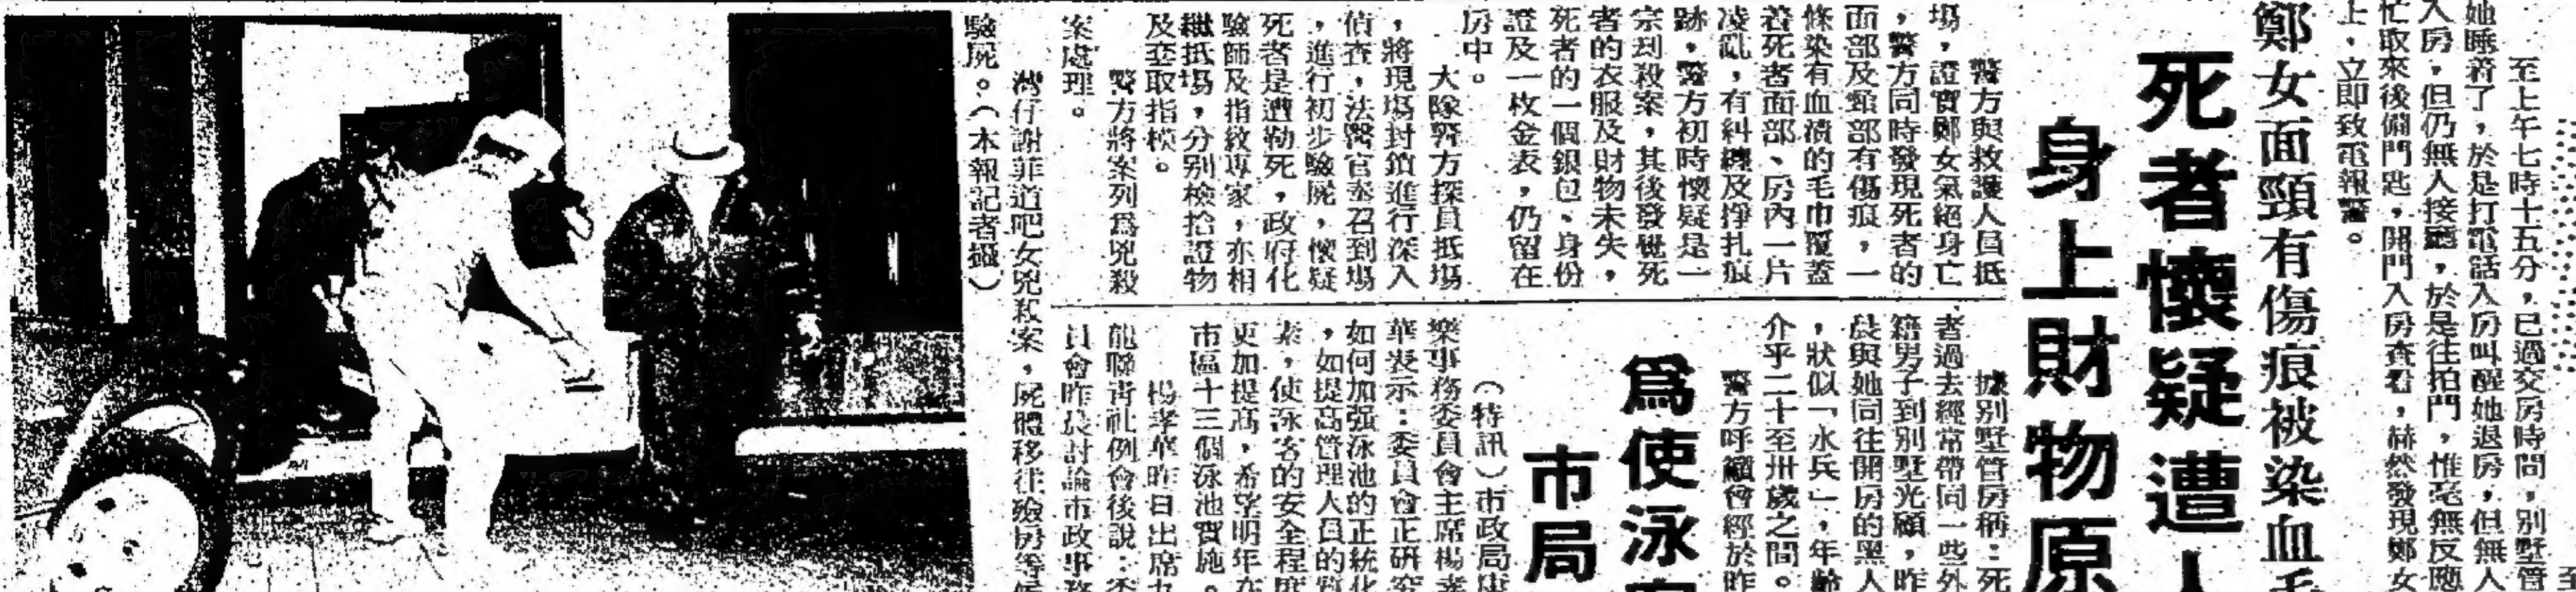 至上午七時十五分，已過交房時間，別墅管
她睡着了，於是打電話入房叫醒她退房，但無人
入房，但仍無人接聽，於是往拍門，惟毫無反應
忙取來後備門匙，開門入房查看，赫然發現鄭女
上，立即致電報警。
鄭女面頸有傷痕被染血毛
死者懷疑遭人
身上財物原
警方與救護人員抵
場，證實鄭女氣絕身亡
，警方同時發現死者的
面部及頸部有傷痕，一
條染有血漬的毛巾覆蓋
着死者面部、房內一片
凌亂，有糾纏及掙扎痕
跡，警方初時懷疑是一
宗刦殺案，其後發覺死
者的衣服及財物未失，
死者的一個銀包、身份
證及一枚金表，仍留在
房中。
大隊警方探員抵塲
，將現塲封鎖進行深入
偵查，法醫官奉召到塲
，進行初步驗屍，懷疑
死者是遭勒死，政府化
驗師及指紋專家，亦相
繼抵塲，分別檢拾證物
及套取指模。
警方將案列爲兇殺
案處理。
據別墅管房稱：死
者過去經常帶同一些外
籍男子到別墅光顧，昨
晨與她同往開房的黑人
，狀似「水兵」，年齡
介乎二十至卅歲之間。
警方呼籲曾經於昨
爲使泳
市局
（特訊）市政局康
樂事務委員會主席楊孝
華表示：委員會正研究
如何加强泳池的正統化
，如提高管理人員的質
素，使泳客的安全程度
更加提高，希望明年在
市區十三個泳池實施。
楊孝華昨日出席九
龍聯青社例會後說：委
員會昨晨討論市政事務
灣仔謝菲道吧女兇殺案，屍體移往殮房等候
驗屍。（本報記者攝）